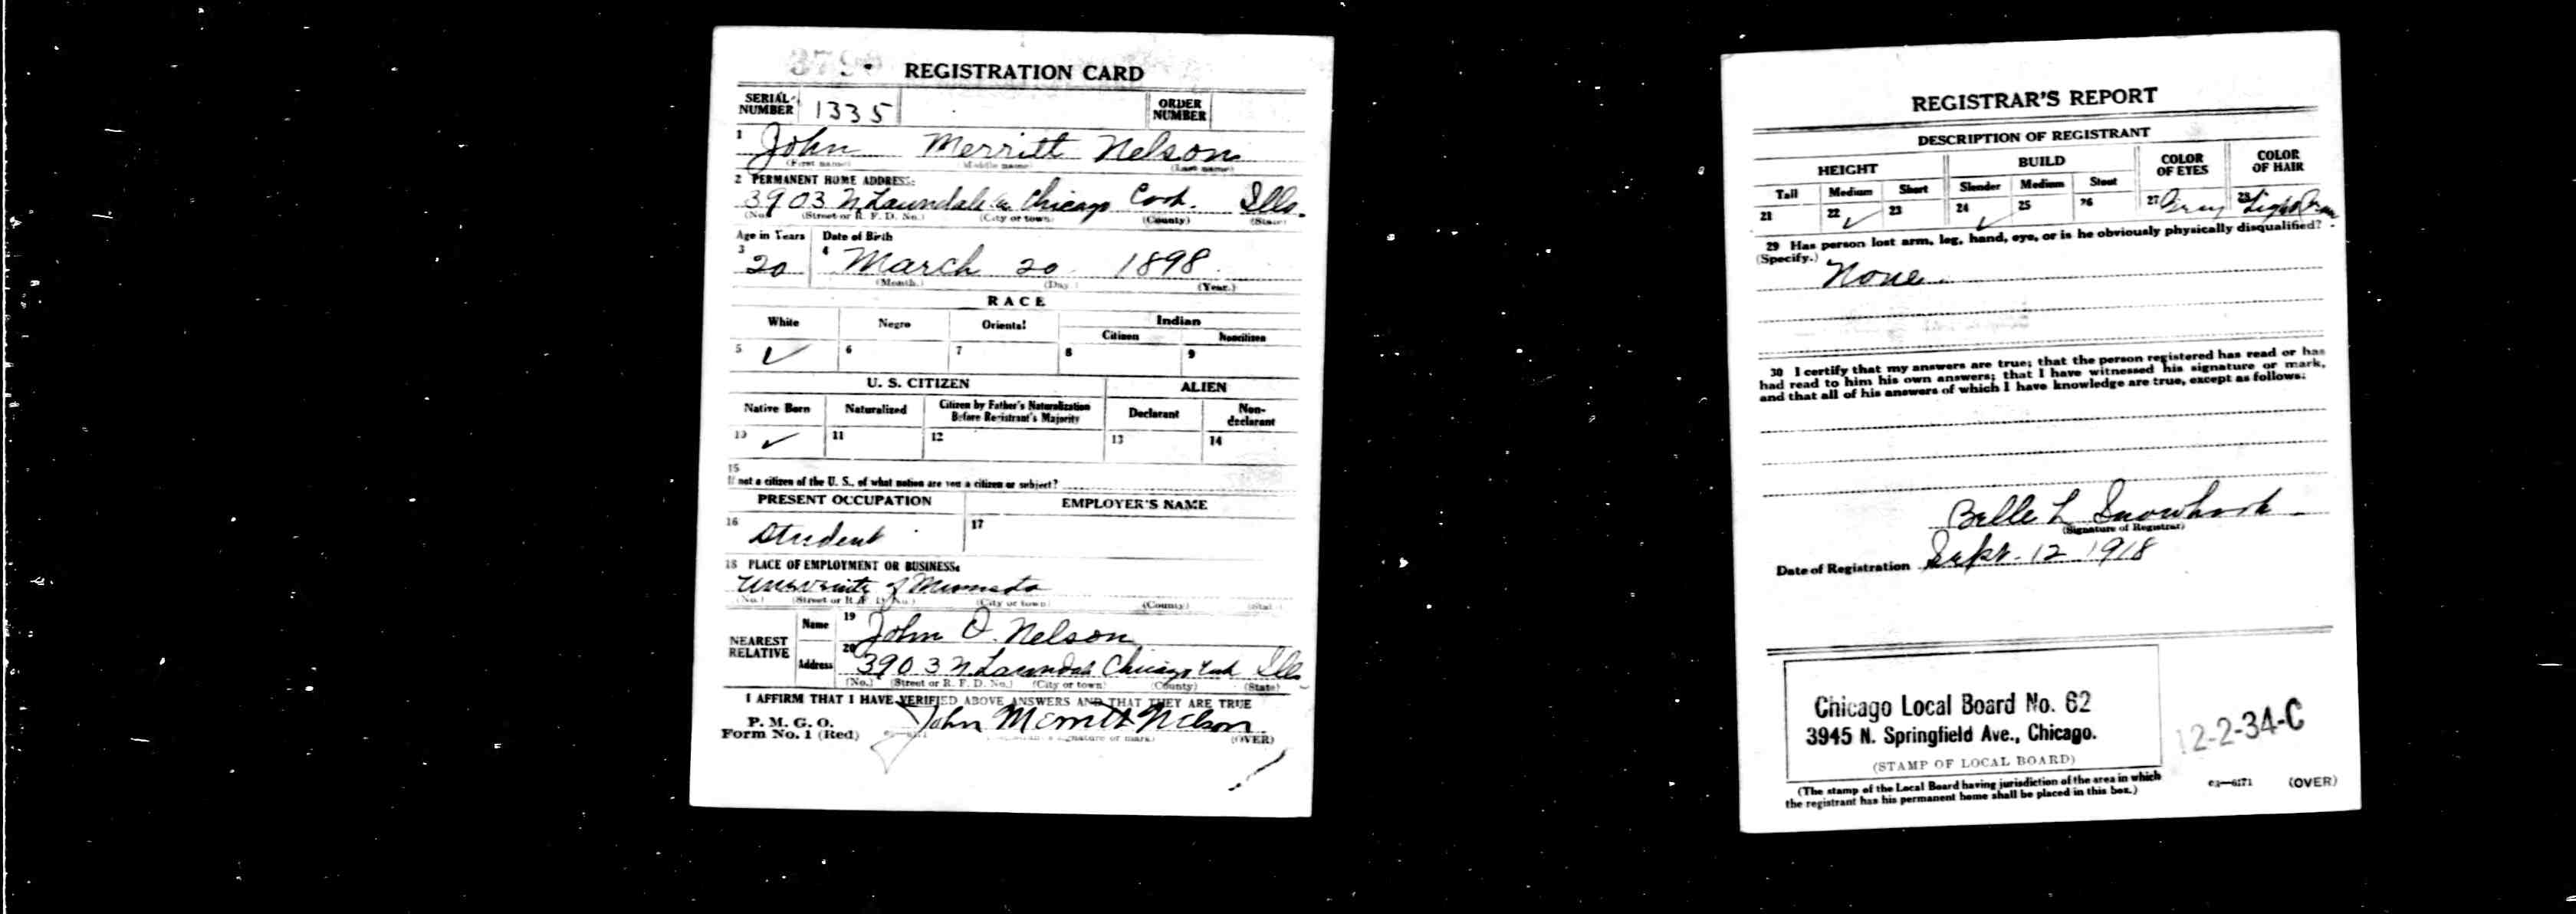 REGISTRATION CARD
SERIAL NUMBER 1335 ORDER NUMBER
1 John Merritt Nelson
(First name) (Middle name) (Last name)
2 PERMANENT HOME ADDRESS:
3903 N Lawndale Chicago Cook. Ills.
(No.) (Street or R. F. D. No.) (City or town) (County) (State)
Age in Years Date of Birth
3 20 4 March 20 1898
(Month.) (Day.) (Year.)
RACE
White Negro Oriental Indian
Citizen Noncitizen
5 ✓ 6 7 8 9
U. S. CITIZEN ALIEN
Native Born Naturalized Citizen by Father's Naturalization Before Registrant's Majority Declarant Non-declarant
10 ✓ 11 12 13 14
15
If not a citizen of the U. S., of what nation are you a citizen or subject?
PRESENT OCCUPATION EMPLOYER'S NAME
16 Student 17
18 PLACE OF EMPLOYMENT OR BUSINESS:
of
(No.) (Street or R. F. D. No.) (City or town) (County) (State)
NEAREST RELATIVE Name 19 John O. Nelson
Address 20 3903 N. Chicago Ills
(No.) (Street or R. F. D. No.) (City or town) (County) (State)
I AFFIRM THAT I HAVE VERIFIED ABOVE ANSWERS AND THAT THEY ARE TRUE
P. M. G. O.
Form No. 1 (Red) John Merritt Nelson
(OVER)
REGISTRAR'S REPORT
DESCRIPTION OF REGISTRANT
HEIGHT BUILD COLOR OF EYES COLOR OF HAIR
Tall Medium Short Slender Medium Stout
21 22 ✓ 23 24 ✓ 25 26 27 Gray 28 Light
29 Has person lost arm, leg, hand, eye, or is he obviously physically disqualified?
(Specify.) None
30 I certify that my answers are true; that the person registered has read or has
had read to him his own answers; that I have witnessed his signature or mark,
and that all of his answers of which I have knowledge are true, except as follows:
Belle L Snowhook
(Signature of Registrar)
Date of Registration Sept. 12 1918
Chicago Local Board No. 62
3945 N. Springfield Ave., Chicago.
(STAMP OF LOCAL BOARD)
12-2-34-C
(The stamp of the Local Board having jurisdiction of the area in which
the registrant has his permanent home shall be placed in this box.)
03—6171 (OVER)